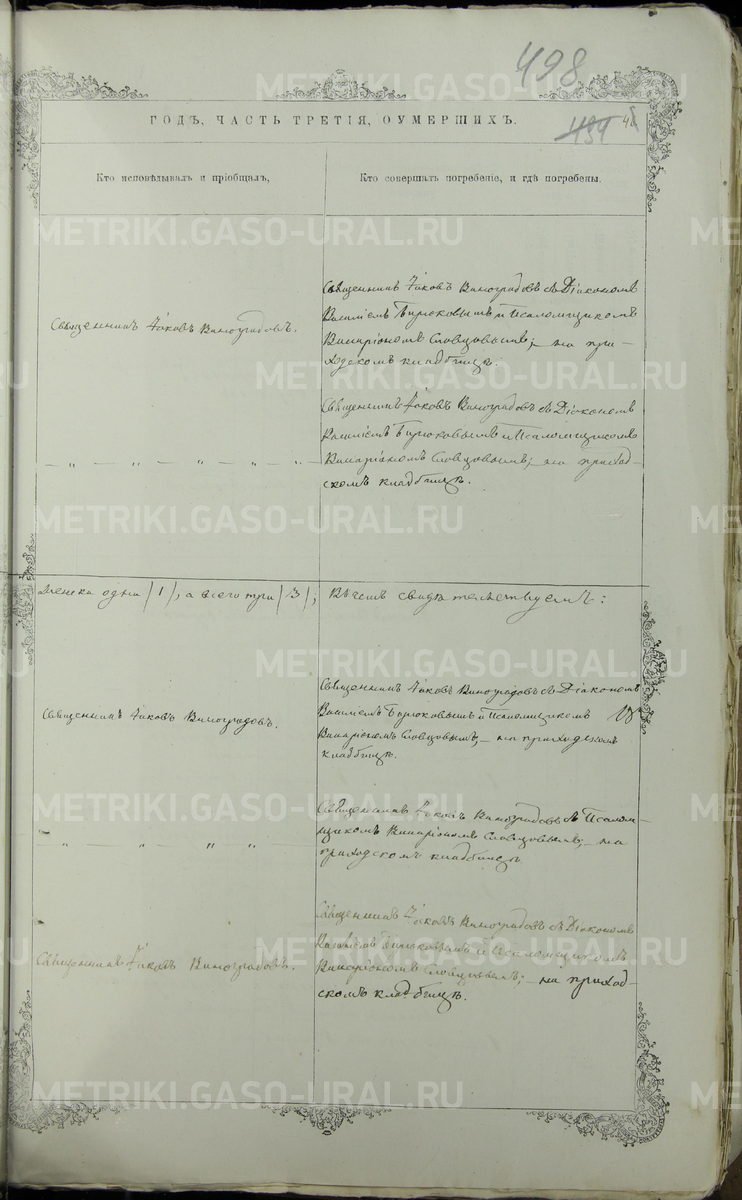 498
ГОДЪ, ЧАСТЬ ТРЕТІЯ, О УМЕРШИХЪ.
Кто исповѣдывалъ и пріобщалъ,
Кто совершалъ погребеніе, и гдѣ погребены.
Священникъ Іаковъ Виноградовъ.
Священникъ Іаковъ Виноградовъ съ Діакономъ
Василіемъ Бирюковымъ и Псаломщикомъ
Виларіономъ Словцовымъ; на при-
ходскомъ кладбищѣ.
– „ – „ – „ – „ – „
Священникъ Іаковъ Виноградовъ съ Діакономъ
Василіемъ Бирюковымъ и Псаломщикомъ
Виларіономъ Словцовымъ; на приход-
скомъ кладбищѣ.
одна /1/, а всего три /3/;
Въ чемъ свидѣтельствуемъ:
Священникъ Іаковъ Виноградовъ.
Священникъ Іаковъ Виноградовъ съ Діакономъ
Василіемъ Бирюковымъ и Псаломщикомъ
Виларіономъ Словцовымъ, – на приходскомъ
кладбищѣ.
– „ – „ „ „
Священникъ Іаковъ Виноградовъ съ Псалом-
щикомъ Виларіономъ Словцовымъ; на
приходскомъ кладбищѣ
Священникъ Іаковъ Виноградовъ.
Священникъ Іаковъ Виноградовъ съ Діакономъ
Василіемъ Бирюковымъ и Псаломщикомъ
Виларіономъ Словцовымъ; – на приход-
скомъ кладбищѣ.
METRIKI.GASO-URAL.RU